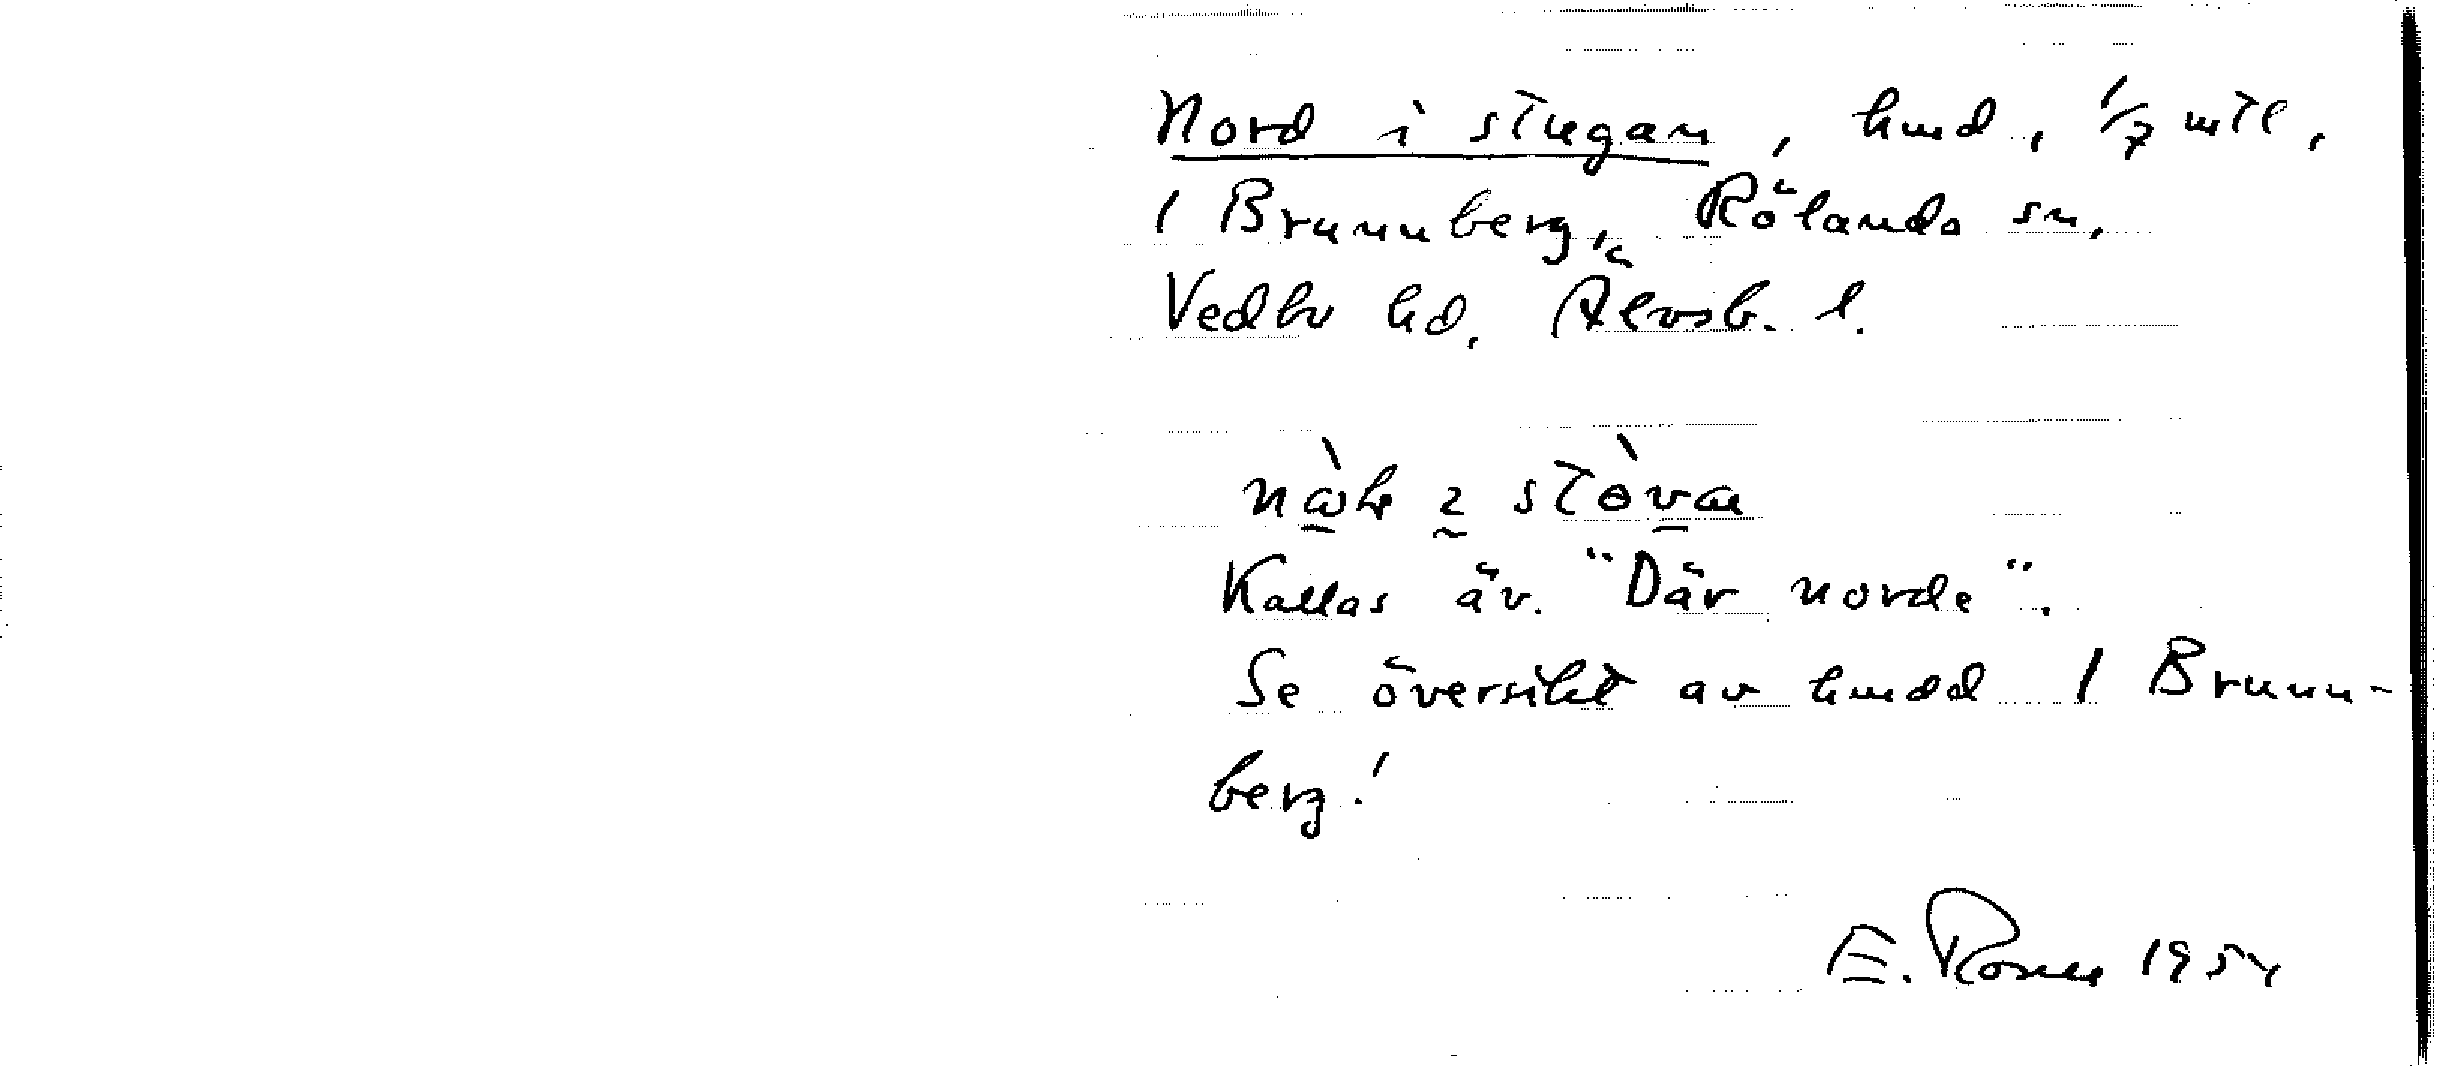 Nord i stugan, hmd, 1/7 mtl,
1 Brunnberg, Rölanda sn,
Vedbo hd, Älvsb. l.
Kallas äv. "Där norde".
Se översikt av hmdd 1 Brunn-
berg!
E. Rosell 1954